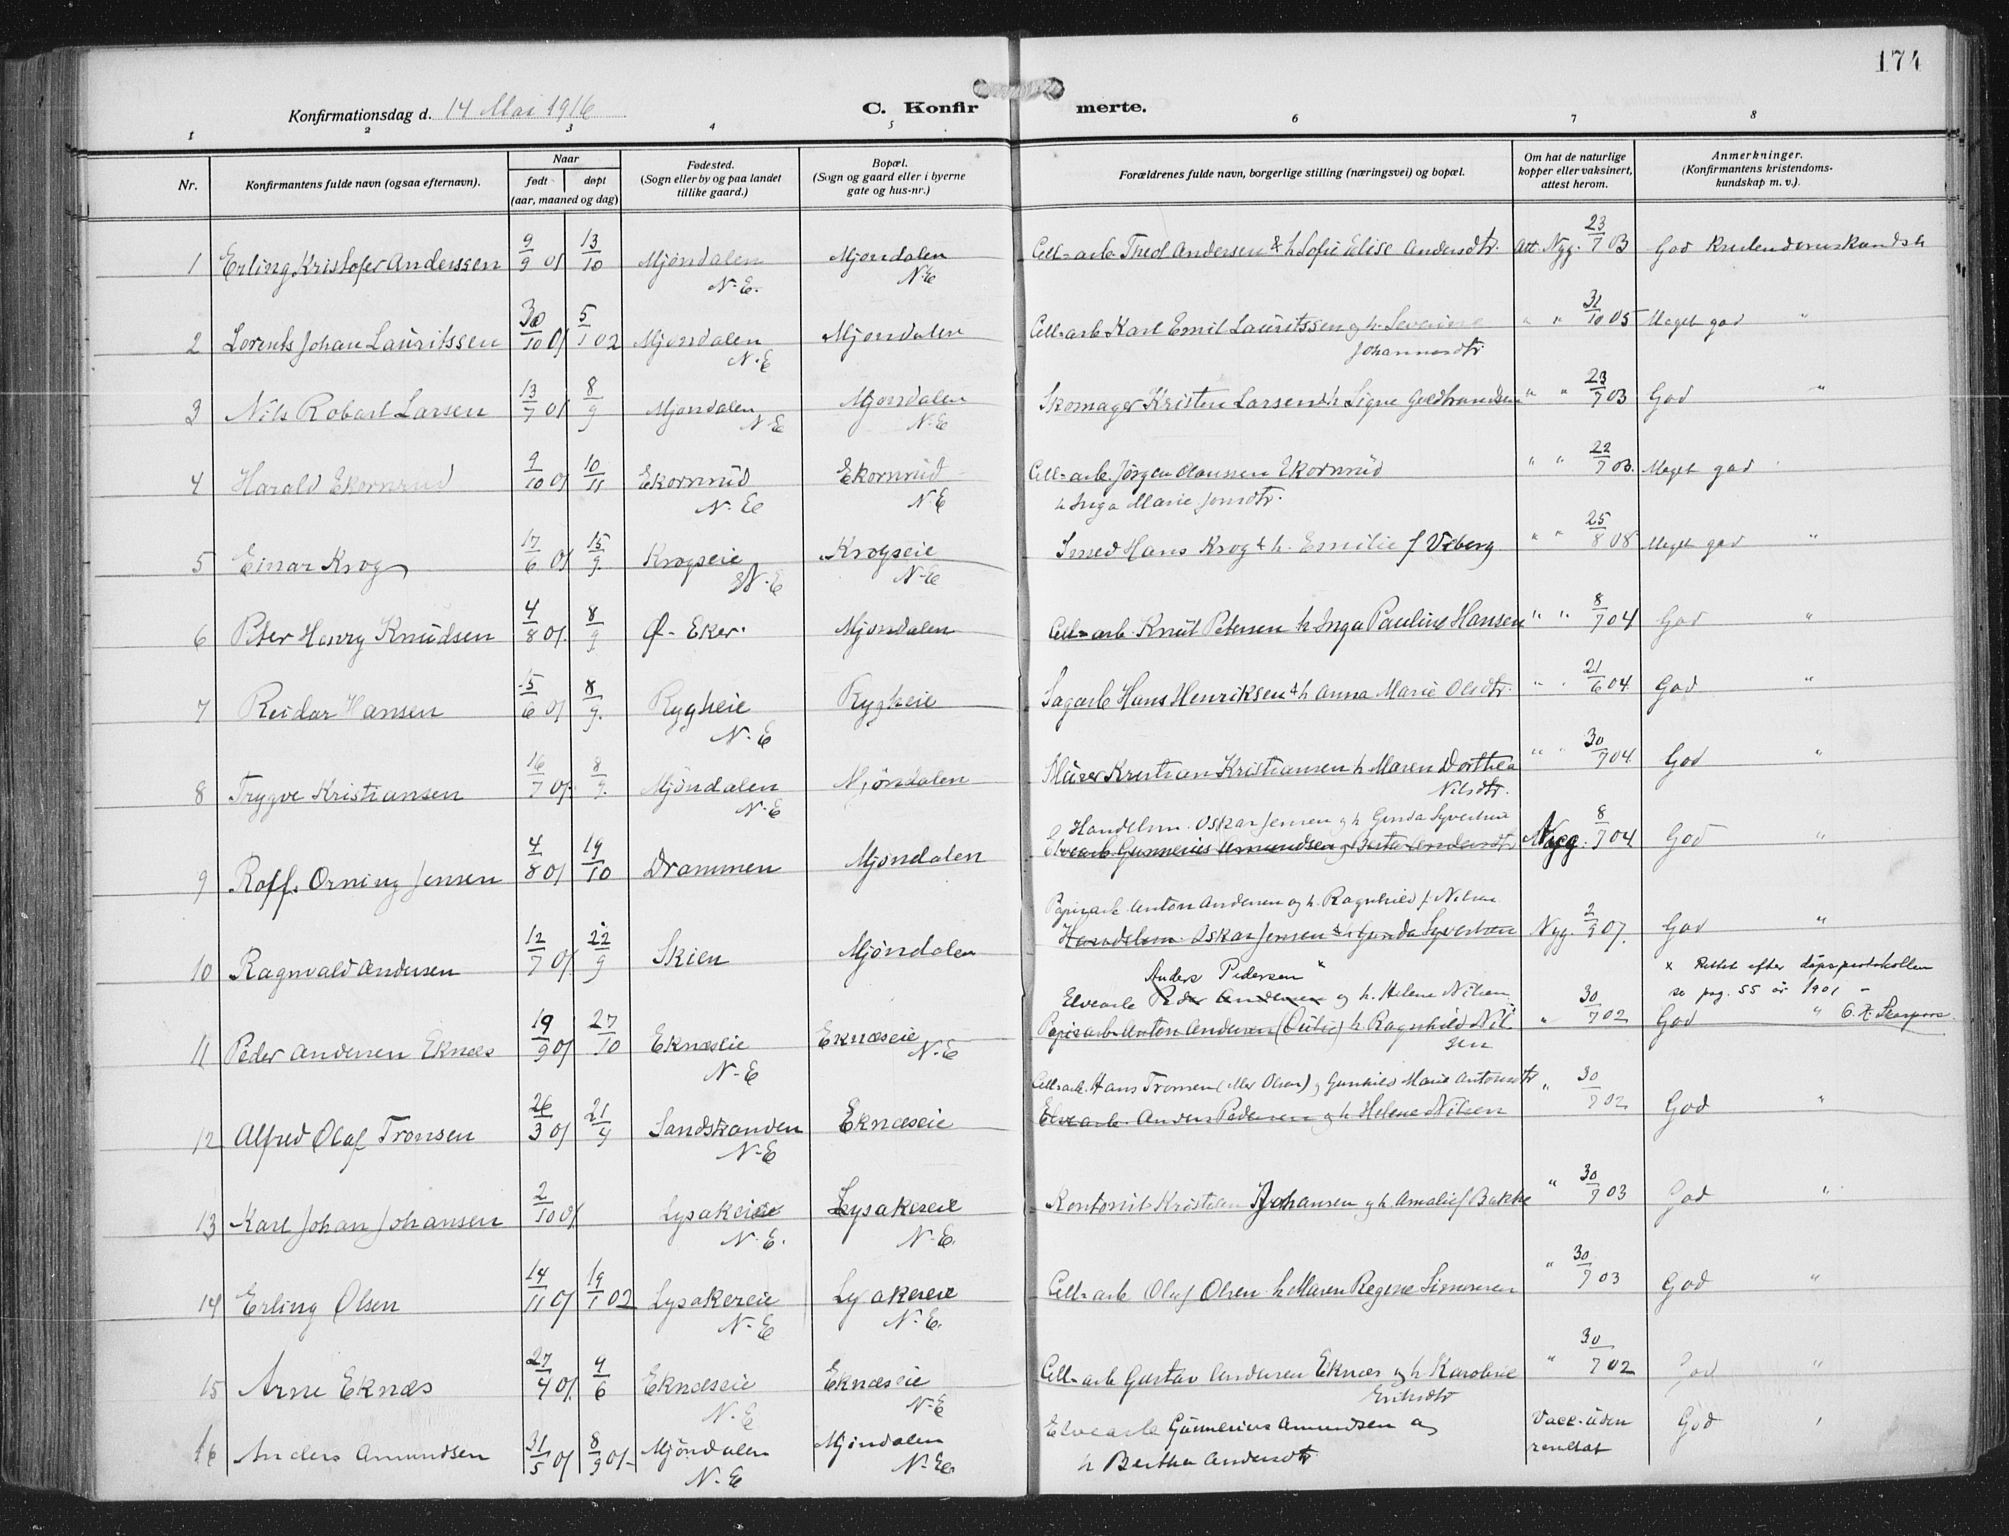 174
Konfirmationsdag d. 14 Mai 1916
C. Konfirmerte.
1 2 3 4 5 6 7 8
Nr.
Konfirmantens fulde navn (ogsaa efternavn).
Naar
født
døpt
(aar, maaned og dag)
Fødested.
(Sogn eller by og paa landet
tillike gaard.)
Bopæl.
(Sogn og gaard eller i byerne
gate og hus-nr.)
Forældrenes fulde navn, borgerlige stilling (næringsvei) og bopæl.
Om hat de naturlige
kopper eller vaksinert,
attest herom.
Anmerkninger.
(Konfirmantens kristendoms-
kundskap m. v.).
1 Erling Kristofer Anderssen 9/9 01 13/10 Mjøndalen N.E. Mjøndalen N.E Cell-arb Theol Andersen & h Sofie Elise Andersdtr. Att. Nyg. 23/7 03 God Kristendomskundsk
2 Lorents Johan Lauritssen 30/10 01 5/1 02 Mjøndalen N.E Mjøndalen Cell-arb Karl Emil Lauritssen og h. Severine
Johannesdtr " " 31/10 05 Meget god "
3 Nils Robart Larsen 13/7 01 8/9 Mjøndalen N.E Mjøndalen N.E Skomager Kristen Larsen & h Signe Guldbrandsen " " 23/7 03 God "
4 Harald Ekornrud 9/10 01 10/11 Ekornrud N.E Ekornrud N.E Cell-arb. Jørgen Olaussen Ekornrud
h Inga Marie Jonsdtr. " " 22/7 03. Meget god
5 Einar Krog 17/6 01 15/9. Krogseie N.E Krogseie N.E Smed Hans Krog & h. Emilie f Viberg " " 25/8 08 Meget god "
6 Peter Henry Knudsen 4/8 01. 8/9. Ø-Eker. Mjøndalen Cell-arb. Knut Petersen h Inga Pauline Hansen " " 8/7 04 God "
7 Reidar Hansen 15/6 01 8/9. Rygheie N.E Rygheie Sagarb Hans Henriksen & h Anna Marie Olsdtr. " " 21/6 04 God "
8 Trygve Kristiansen 16/7 01. 8/9. Mjöndalen N.E Mjöndalen Murer Kristian Kristiansen h Maren Dorthea
Nilsdtr. " " 30/7 04 God "
9 Rolf. Orning Jensen 4/8 01 19/10 Drammen Mjøndalen Handelsm. Oskar Jensen og h Gunda Syvertsen
Elvearb Gunnerius Amundsen og Berta Andersdtr Nyg. 8/7 04 God "
10 Ragnvald Andersen 12/7 01 22/9 Skien Mjøndalen Papirarb Anton Andersen og h. Ragnhild f. Nilsen
Handelsm. Oskar Jensen & h Gunda Syvertsen Nyg. 2/9 07. God "
x Rettet efter døpsprotokollen
se pag. 55 år 1901 -
11 Peder Andersen Eknæs 19/9 01 27/10 Eknæseie N-E Eknæseie N-E Anders Pedersen x
Elvearb Peder Andersen og h. Helene Nilsen
Papirarb Anton Andersen h Ragnhild Nil-
sen " 30/7 02 God "
12 Alfred Olaf Tronsen 26/3 01 21/4 Sandstranden N-E Eknæseie Cell-arb. Hans Tronsen (eller Olsen) og Gunhild Marie Antonsdtr
Elvearb. Anders Pedersen og h Helene Nilsen " 30/7 02 God "
13 Karl Johan Johansen 2/10 01 Lysakereie N.E. Lysakereie N.E. Kontorist Kristian Johansen og h. Amalie f Bakke " 30/7 03 God "
14 Erling Olsen 14/11 01 19/1 02 Lysakereie N-E Lysakereie N.E. Cell-arb Olaf Olsen h Maren Regine Simonsen " 30/7 03 God "
15 Arne Eknæs 27/4 01. 9/6 Eknæseie N.E Eknæseie N.E Cell-arb Gustav Andersen Eknæs og h Karoline
Eriksdtr " 30/7 02 God "
16 Anders Amundsen 31/5 01 8/9 01- Mjöndalen N.E Mjøndalen N.E. Elvearb Gunnerius Amundsen og
h Bertha Andersdtr Vacc. uden
resultat God